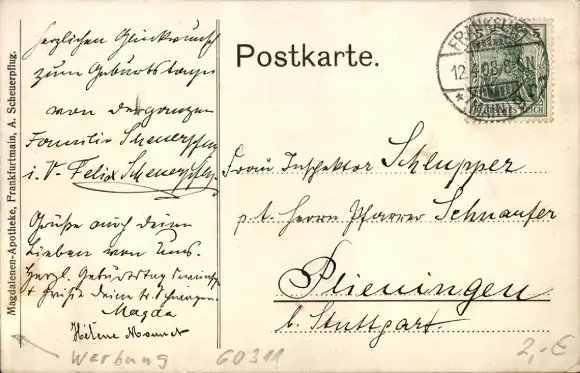 Magdalenen-Apotheke, Frankfurtmain, A. Scheuerpflug.
Herzlichen Glückwunsch
zum Geburtstage
von der ganzen
Familie Scheuerpflug
i. V. Felix Scheuerpflug.
Grüße auch deine
Lieben von Uns.
Herzl. Geburtstag
Magda
Helene
Postkarte.
FRANKFURT
12.4.08.
(MAIN)
5
DEUTSCHES REICH
Frau Inspektor Schlupper
p. A. Herrn Pfarrer Schnaufer
Plieningen
b. Stuttgart
Werbung
60311
2,- €